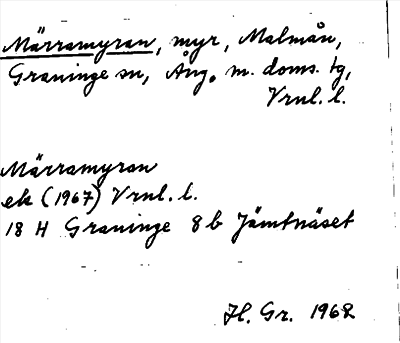 Märramyran, myr, Malmån,
Graninge sn, Ång. m. doms. tg,
Vrnl. l.
Märramyran
ek (1967) Vrnl. l.
18 H Graninge 8 b Jämtnäset
H. Gr. 1968